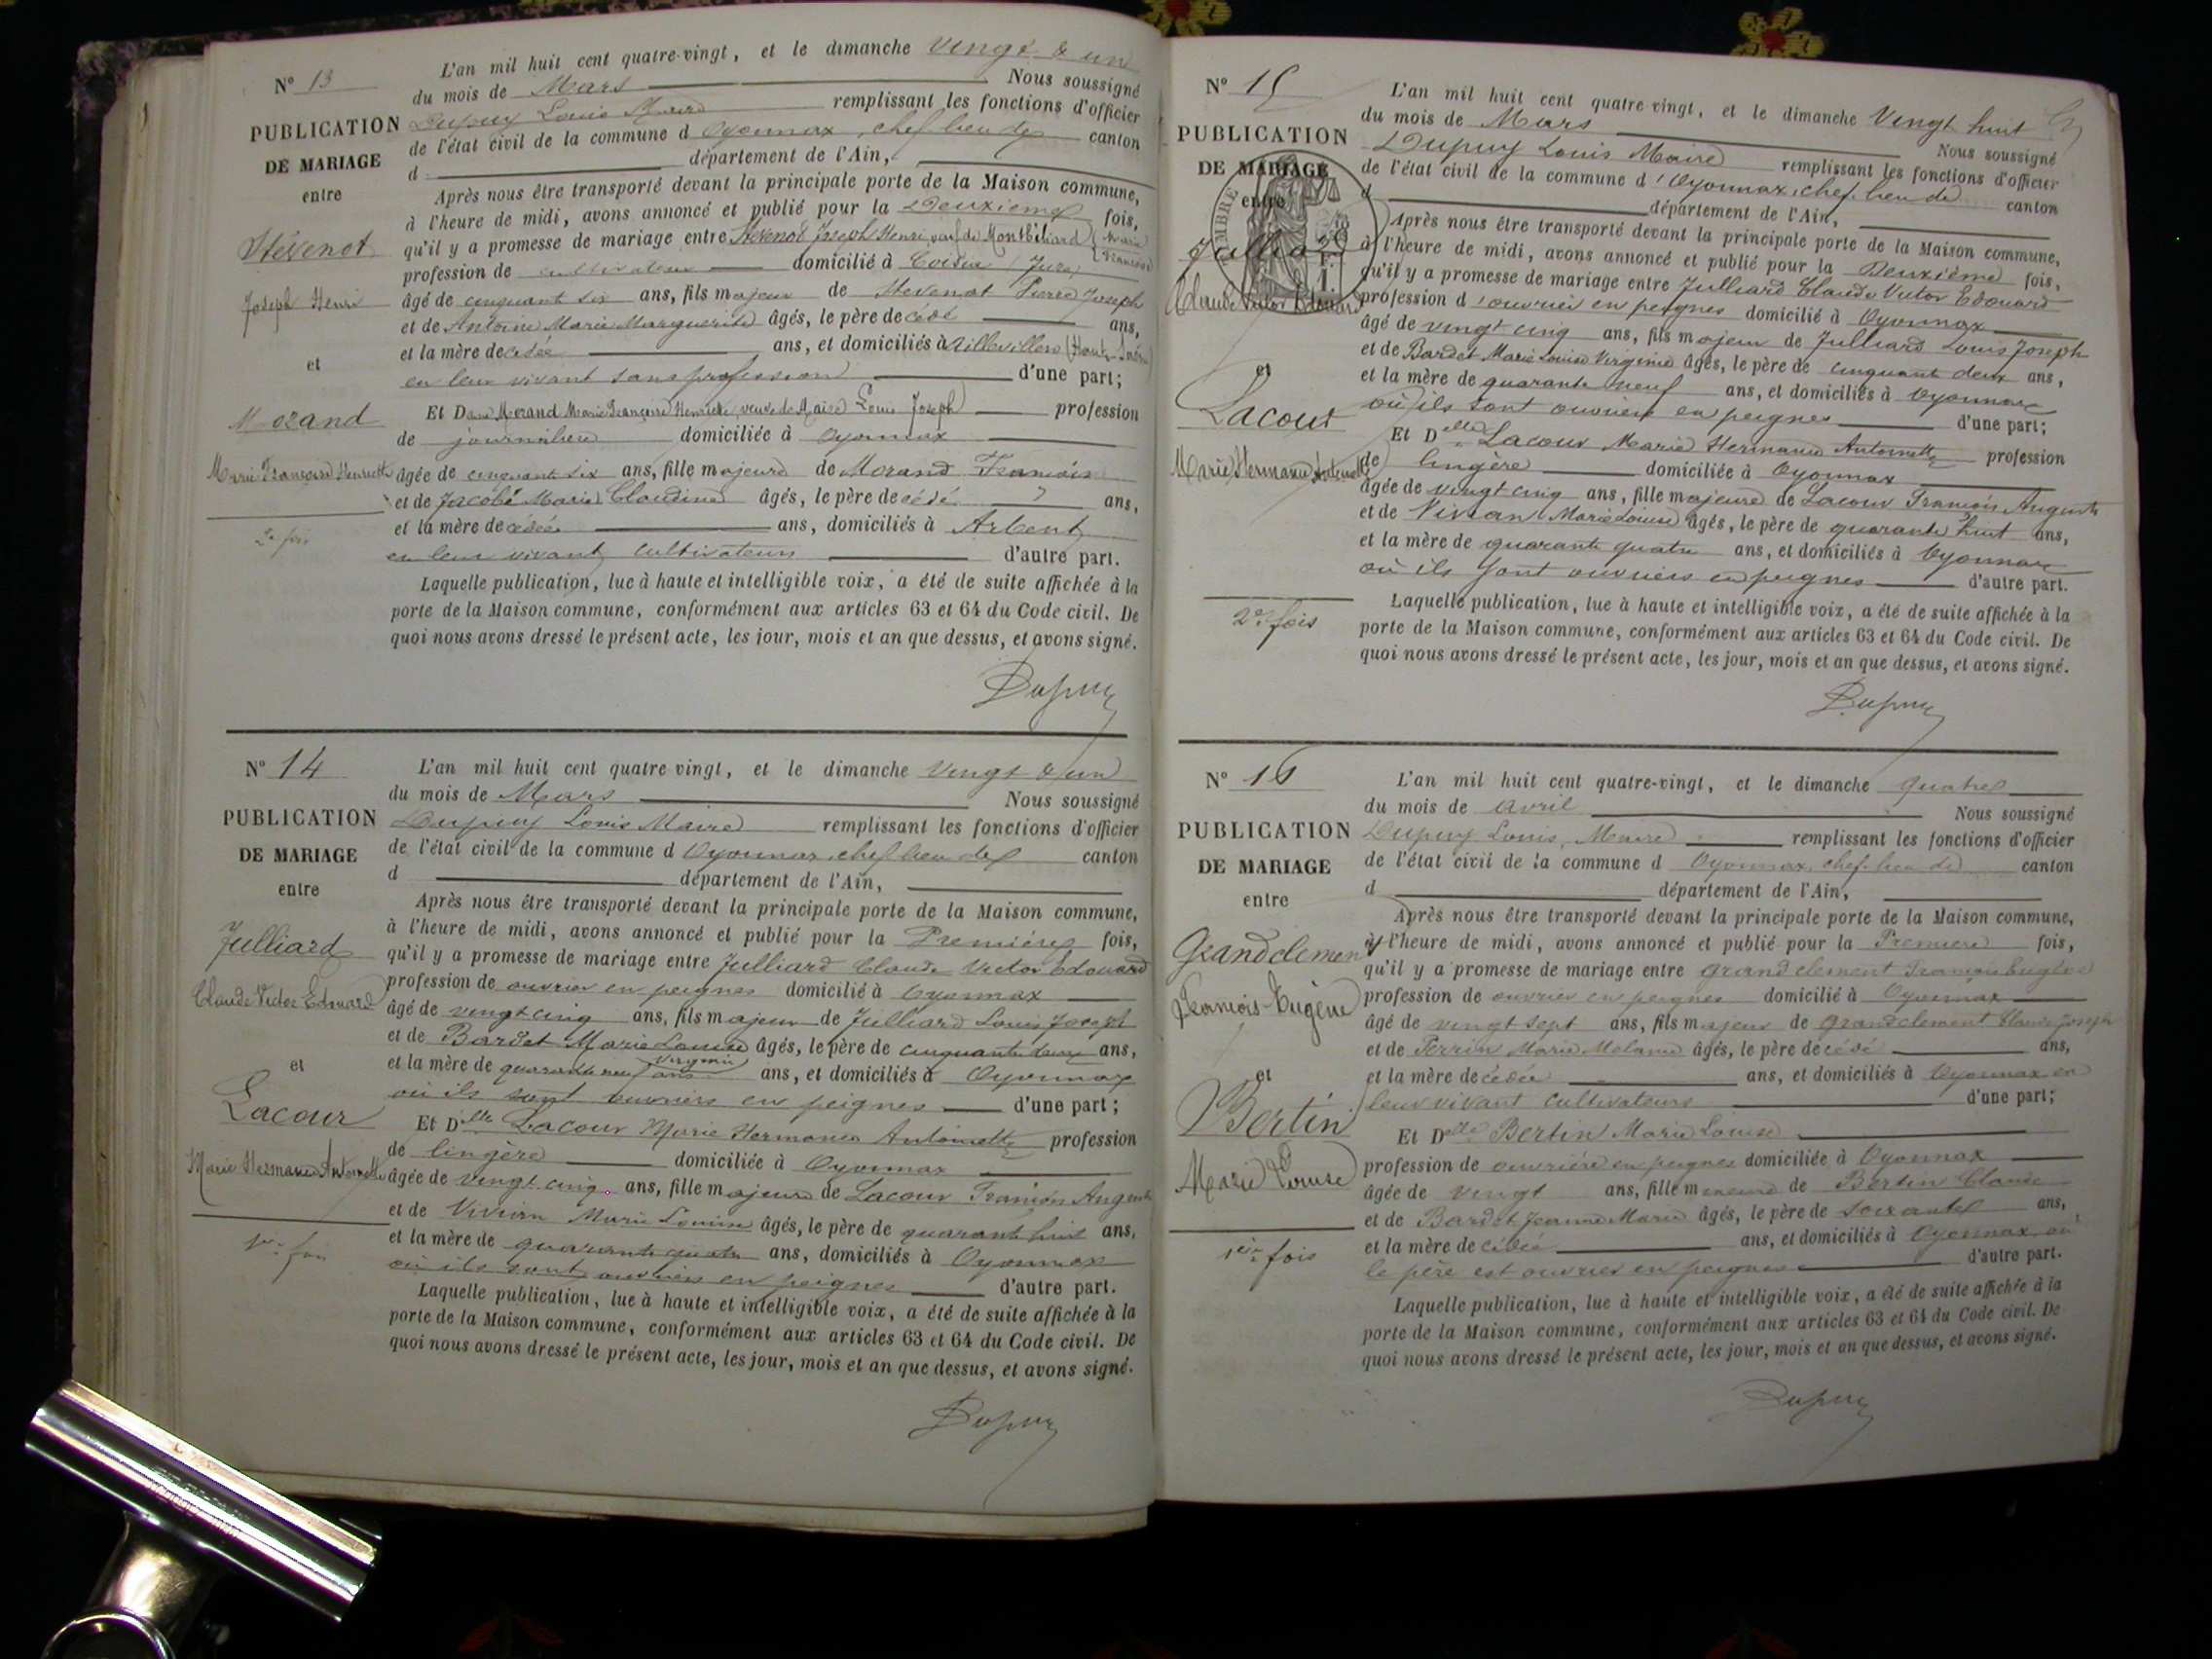 N° 13
PUBLICATION
DE MARIAGE
entre
Stévenot
Joseph Henri
et
Morand
Marie Françoise Henriette
2e fois
L'an mil huit cent quatre-vingt, et le dimanche vingt & un
du mois de Mars Nous soussigné
Dupuy Louis Maire remplissant les fonctions d'officier
de l'état civil de la commune d Oyonnax, chef lieu de canton
d département de l'Ain,
Après nous être transporté devant la principale porte de la Maison commune,
à l'heure de midi, avons annoncé et publié pour la Deuxième fois,
qu'il y a promesse de mariage entre Stévenot Joseph Henri, veuf de Montbéliard (Marie Françoise)
profession de cultivateur domicilié à (Jura)
âgé de cinquant six ans, fils majeur de Stevenot Pierre Joseph
et de Antoine Marie Marguerite âgés, le père decédé ans,
et la mère decédée ans, et domiciliés à Aillevillers (Haute-Saône)
en leur vivant sans profession d'une part;
Et Dame Morand Marie Françoise Henriette, veuve de Maire Louis Joseph profession
de journalière domiciliée à Oyonnax
âgée de cinquante six ans, fille majeure de Morand François
et de Jacobé Marie Claudine âgés, le père decédé ans,
et la mère decédée ans, domiciliés à Arbent
en leur vivant cultivateurs d'autre part.
Laquelle publication, lue à haute et intelligible voix, a été de suite affichée à la
porte de la Maison commune, conformément aux articles 63 et 64 du Code civil. De
quoi nous avons dressé le présent acte, les jour, mois et an que dessus, et avons signé.
Dupuy
N° 14
PUBLICATION
DE MARIAGE
entre
Julliard
Claude Victor Edouard
et
Lacour
Marie Hermance Antoinette
1re fois
L'an mil huit cent quatre-vingt, et le dimanche vingt & un
du mois de Mars Nous soussigné
Dupuy Louis Maire remplissant les fonctions d'officier
de l'état civil de la commune d Oyonnax, chef lieu de canton
d département de l'Ain,
Après nous être transporté devant la principale porte de la Maison commune,
à l'heure de midi, avons annoncé et publié pour la Première fois,
qu'il y a promesse de mariage entre Julliard Claude Victor Edouard
profession de ouvrier en peignes domicilié à Oyonnax
âgé de vingt cinq ans, fils majeur de Julliard Louis Joseph
et de Bardet Marie Louise Virginie âgés, le père de cinquante deux ans,
et la mère de quarante neuf ans ans, et domiciliés à Oyonnax
où ils sont ouvriers en peignes d'une part;
Et Dlle Lacour Marie Hermance Antoinette profession
de lingère domiciliée à Oyonnax
âgée de vingt cinq ans, fille majeure de Lacour François Auguste
et de Vivian Marie Louise âgés, le père de quarante huit ans,
et la mère de quarante quatre ans, domiciliés à Oyonnax
où ils sont ouvriers en peignes d'autre part.
Laquelle publication, lue à haute et intelligible voix, a été de suite affichée à la
porte de la Maison commune, conformément aux articles 63 et 64 du Code civil. De
quoi nous avons dressé le présent acte, les jour, mois et an que dessus, et avons signé.
Dupuy
N° 15
PUBLICATION
DE MARIAGE
entre
Julliard
Claude Victor Edouard
et
Lacour
Marie Hermance Antoinette
2e fois
L'an mil huit cent quatre-vingt, et le dimanche Vingt huit
du mois de Mars Nous soussigné
Dupuy Louis Maire remplissant les fonctions d'officier
de l'état civil de la commune d'Oyonnax, chef-lieu de canton
d département de l'Ain,
Après nous être transporté devant la principale porte de la Maison commune,
à l'heure de midi, avons annoncé et publié pour la Deuxième fois,
qu'il y a promesse de mariage entre Julliard Claude Victor Edouard
profession d'ouvrier en peignes domicilié à Oyonnax
âgé de vingt cinq ans, fils majeur de Julliard Louis Joseph
et de Bardet Marie Louise Virginie âgés, le père de cinquante deux ans,
et la mère de quarante neuf ans, et domiciliés à Oyonnax
où ils sont ouvriers en peignes d'une part;
Et Delle Lacour Marie Hermance Antoinette profession
de lingère domiciliée à Oyonnax
âgée de vingt cinq ans, fille majeure de Lacour François Auguste
et de Vivian Marie Louise âgés, le père de quarante huit ans,
et la mère de quarante quatre ans, et domiciliés à Oyonnax
où ils sont ouvriers en peignes d'autre part.
Laquelle publication, lue à haute et intelligible voix, a été de suite affichée à la
porte de la Maison commune, conformément aux articles 63 et 64 du Code civil. De
quoi nous avons dressé le présent acte, les jour, mois et an que dessus, et avons signé.
Dupuy
N° 16
PUBLICATION
DE MARIAGE
entre
Grandclement
François-Eugène
et
Bertin
Marie Louise
1ère fois
L'an mil huit cent quatre-vingt, et le dimanche quatre
du mois de avril Nous soussigné
Dupuy Louis, Maire remplissant les fonctions d'officier
de l'état civil de la commune d Oyonnax, chef-lieu de canton
d département de l'Ain,
Après nous être transporté devant la principale porte de la Maison commune,
à l'heure de midi, avons annoncé et publié pour la Première fois,
qu'il y a promesse de mariage entre Grandclement François Eugène
profession de ouvrier en peignes domicilié à Oyonnax
âgé de vingt sept ans, fils majeur de Grandclement Claude Joseph
et de Perrin Marie Melanie âgés, le père decédé ans,
et la mère decédée ans, et domiciliés à Oyonnax en
leur vivant cultivateurs d'une part;
Et Delle Bertin Marie Louise
profession de ouvrière en peignes domiciliée à Oyonnax
âgée de vingt ans, fille mineure de Bertin Claude
et de Bardet Jeanne Marie âgés, le père de soixante ans,
et la mère de cédée ans, et domiciliés à Oyonnax, où
le père est ouvrier en peignes d'autre part.
Laquelle publication, lue à haute et intelligible voix, a été de suite affichée à la
porte de la Maison commune, conformément aux articles 63 et 64 du Code civil. De
quoi nous avons dressé le présent acte, les jour, mois et an que dessus, et avons signé.
Dupuy